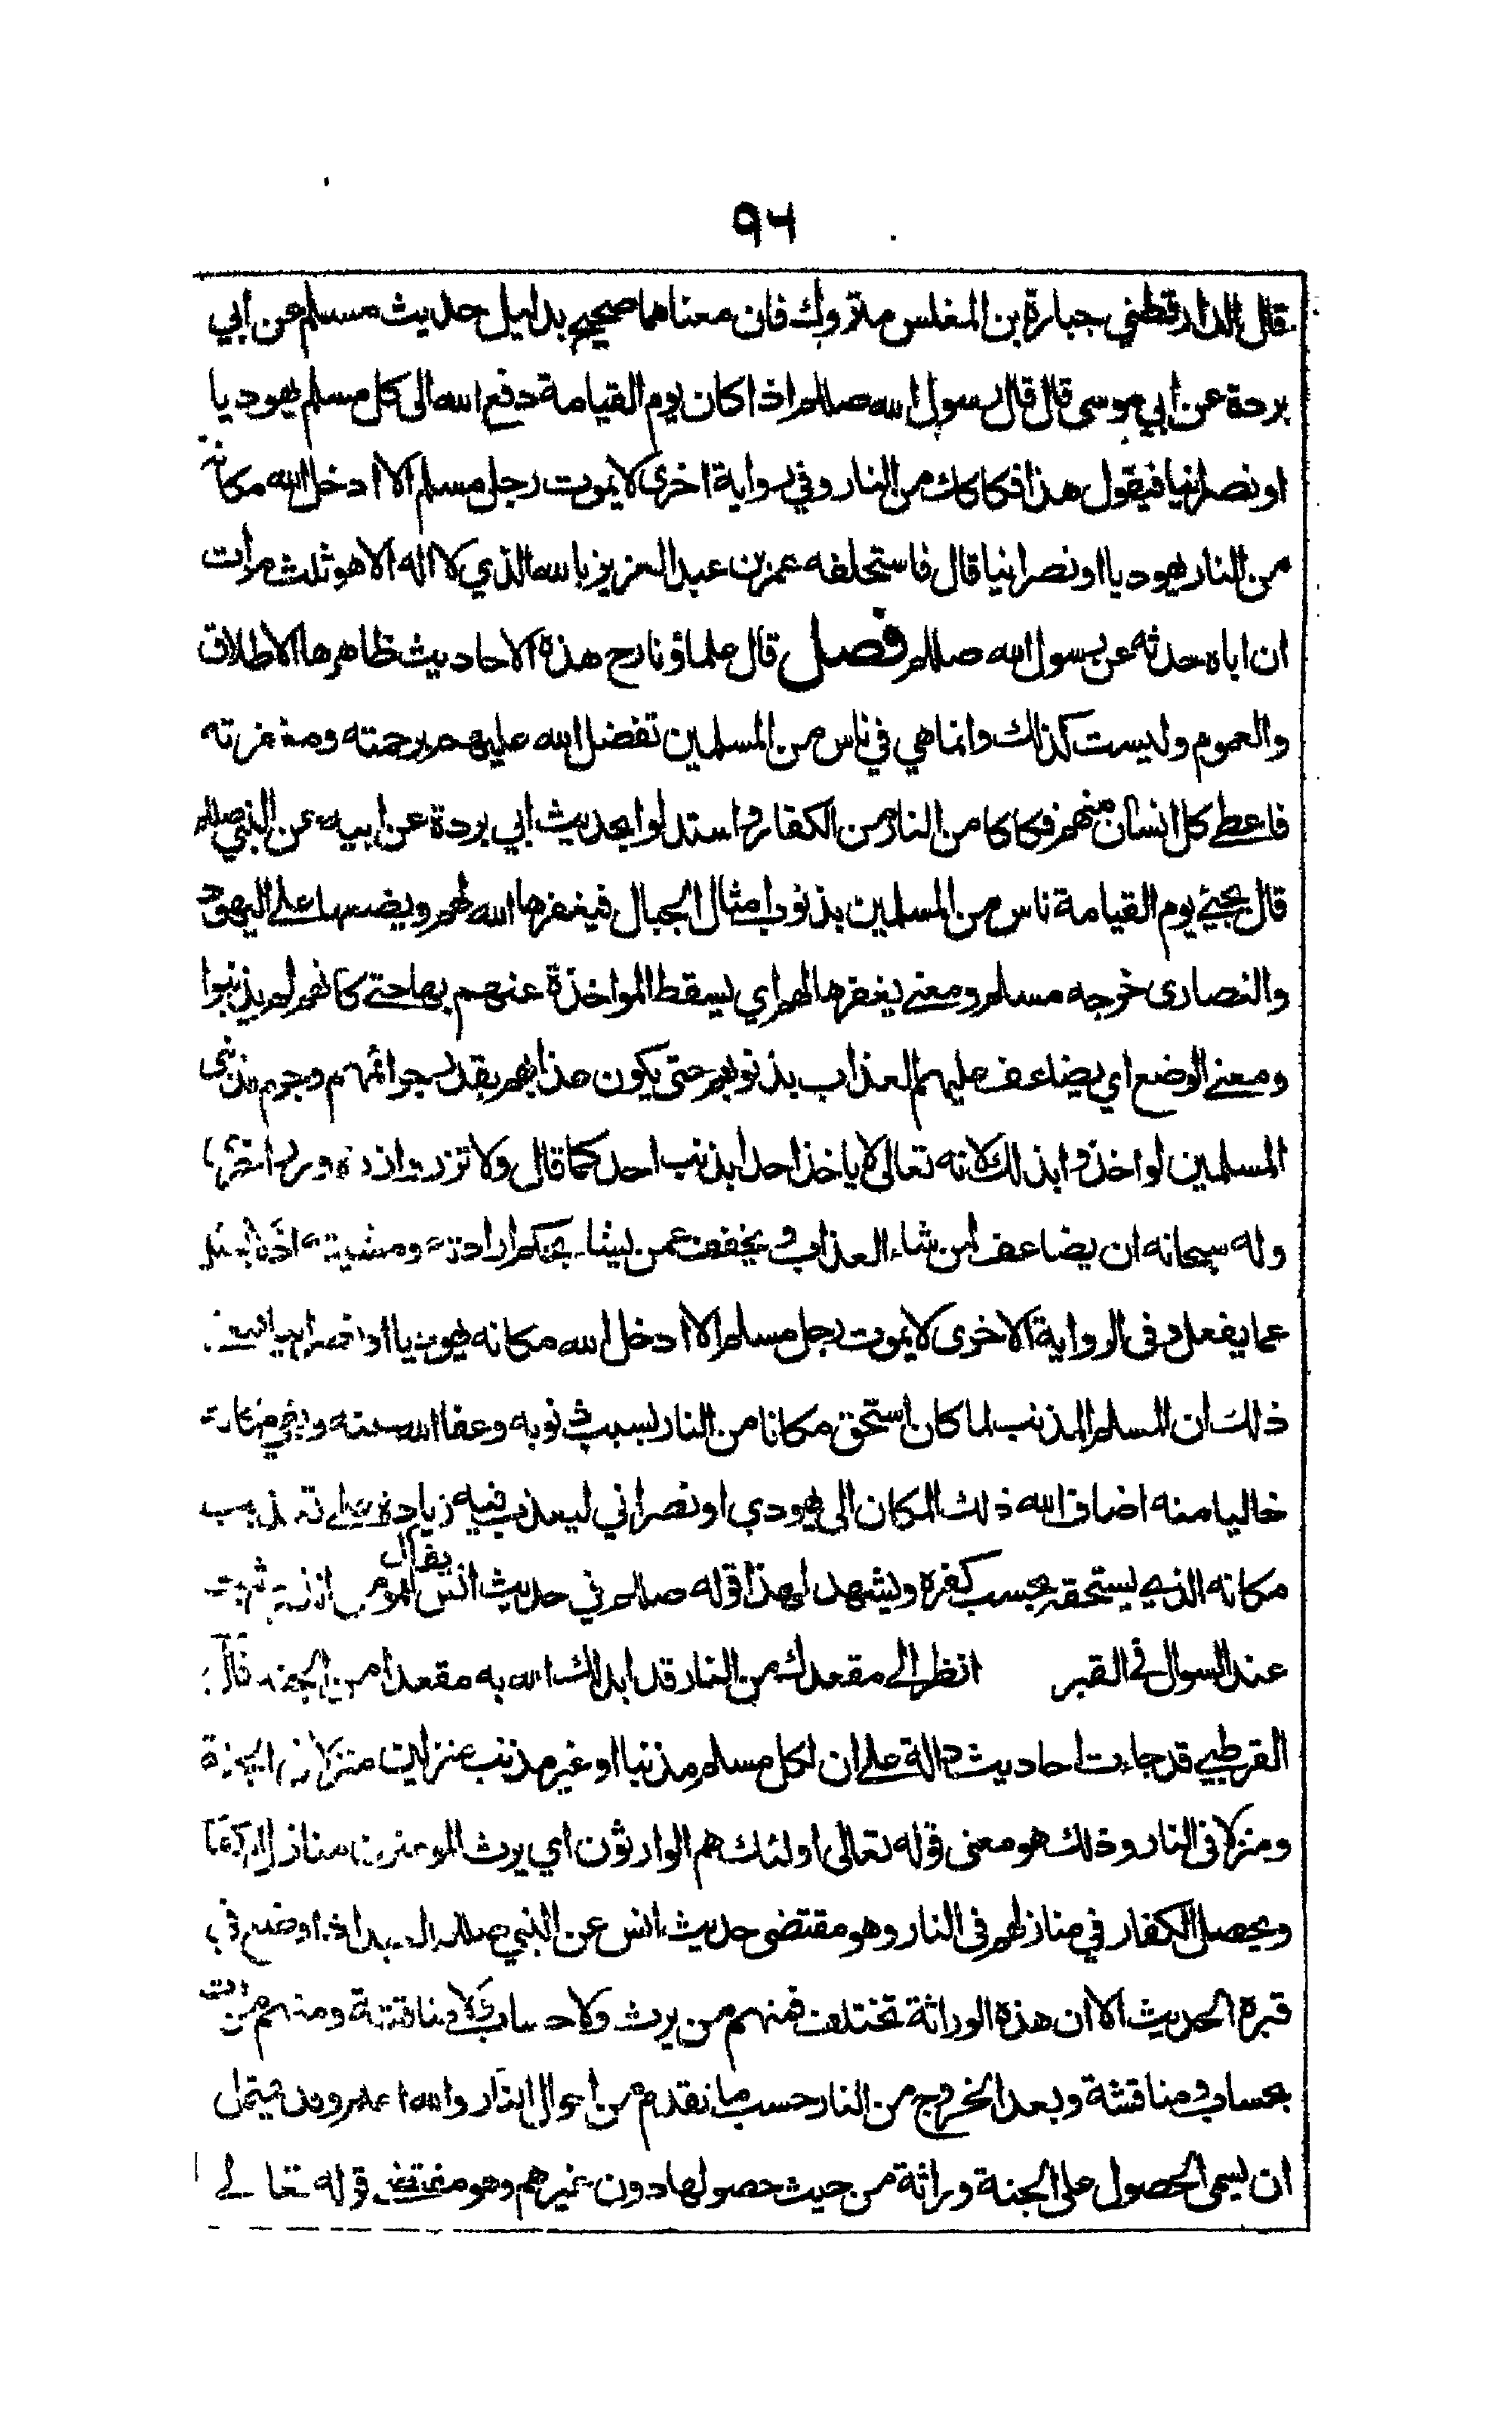 ٩٦
قال الدارقطني جبارة بن المغلس متروك فان معناهما صحيح بدليل حديث مسلم عن ابي
بردة عن ابي موسى قال قال رسول الله صللم اذا كان يوم القيامة دفع الله الى كل مسلم يهوديا
او نصرانيا فيقول هذا فكاكك من النار وفي رواية اخرى لا يموت رجل مسلم الا ادخل الله مكانه
من النار يهوديا او نصرانيا قال فاستحلفه عمر بن عبد العزيز بالله الذي لا اله الا هو ثلث مرات
ان اباه حدثه عن رسول الله صللم فصل قال علماؤنا رح هذه الاحاديث ظاهرها الاطلاق
والعموم وليست كذلك وانما هي في ناس من المسلمين تفضل الله عليهم برحمته ومغفرته
فاعطى كل انسان منهم فكاكا من النار من الكفار واستدلوا بحديث ابي بردة عن ابيه عن النبي صللم
قال يجيء يوم القيامة ناس من المسلمين بذنوب امثال الجبال فيغفرها الله لهم ويضعها على اليهود
والنصارى خرجه مسلم ومعنى يغفرها لهم اي يسقط المواخذة عنهم بها حتى كانهم لم يذنبوا
ومعنى الوضع اي يضاعف عليهم العذاب بذنوبهم حتى يكون عذابهم بقدر جرائمهم وجرم مذنبي
المسلمين لو اخذوا بذلك لانه تعالى لا ياخذ احدا بذنب احد كما قال ولا تزر وازرة وزر اخرى
وله سبحانه ان يضاعف لمن شاء العذاب ويخفف عمن يشاء بحكم ارادته ومشيته اذ لا يسئل
عما يفعل وفى الرواية الاخرى لا يموت رجل مسلم الا ادخل الله مكانه يهوديا او نصرانيا
ذلك ان المسلم المذنب لما كان استحق مكانا من النار بسبب ذنوبه وعفا الله عنه وبقي مكانه
خاليا منه اضاف الله ذلك المكان الى يهودي او نصراني ليعذب فيه زيادة على تعذيب
مكانه الذي يستحقه بحسب كفره ويشهد لهذا قوله صللم في حديث انس يقال للمومن الذي يثبت
عند السوال في القبر انظر الى مقعدك من النار قد ابدلك الله به مقعدا من الجنة قال
القرطبي قد جاءت احاديث دالة على ان لكل مسلم مذنبا او غير مذنب منزلين منزلا في الجنة
ومنزلا فى النار وذلك هو معنى قوله تعالى اولئك هم الوارثون اي يرث المومنون منازل الكفار
ويحصل الكفار في منازلهم فى النار وهو مقتضى حديث انس عن النبي صللم ان العبد اذا وضع في
قبره الحديث الا ان هذه الوراثة تختلف فمنهم من يرث ولا حساب ولا مناقشة ومنهم من يرث
بحساب ومناقشة وبعد الخروج من النار حسب ما تقدم من احوال النار والله اعلم وقد يحتمل
ان يسمى الحصول على الجنة وراثة من حيث حصولها دون غيرهم وهو مقتضى قوله تعالى